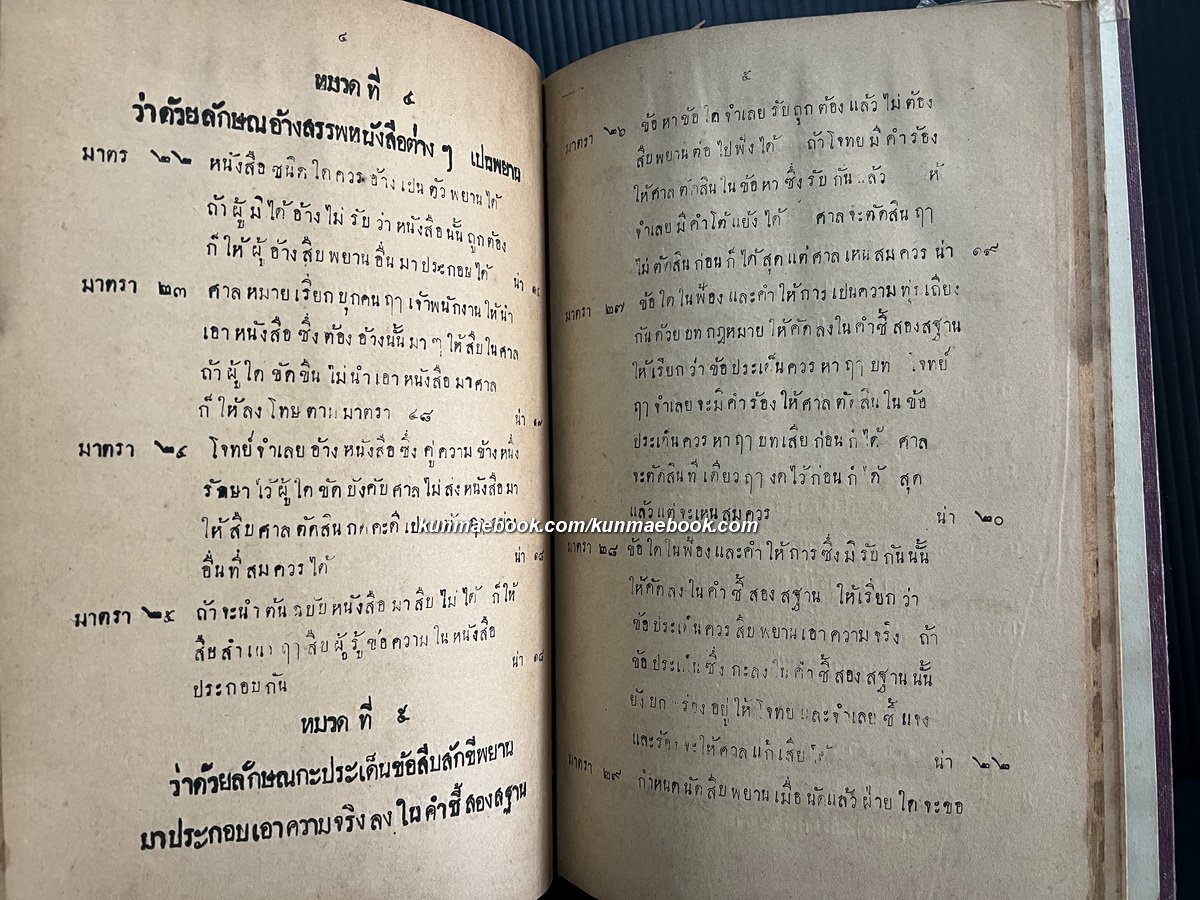 ๔
หมวด ที่ ๔
ว่าด้วยลักษณอ้างสรรพหนังสือต่าง ๆ เปนพยาน
มาตรา ๒๒ หนังสือ ชนิด ใด ควร อ้าง เปน ตัว พยาน ได้
ถ้า ผู้ มิ ได้ อ้าง ไม่ รับ ว่า หนังสือ นั้น ถูก ต้อง
ก็ ให้ ผู้ อ้าง สืบ พยาน อื่น มา ประกอบ ได้ น่า
มาตรา ๒๓ ศาล หมาย เรียก บุคน ฤๅ เจ้าพนักงาน ให้ นำ
เอา หนังสือ ซึ่ง ต้อง อ้าง นั้น มา ๆ ให้ สืบ ใน ศาล
ถ้า ผู้ ใด ขัด ขืน ไม่ นำ เอา หนังสือ มา ศาล
ก็ ให้ ลง โทษ ตาม มาตรา ๔๘ น่า ๑๗
มาตรา ๒๔ โจทย์ จำเลย อ้าง หนังสือ ซึ่ง คู่ ความ ข้าง หนึ่ง
รักษา ไว้ ผู้ ใด ขัด บังคับ ศาล ไม่ ส่ง หนังสือ มา
ให้ สืบ ศาล ตัดสิน กดคะดี เป
kunmaebook.com/kunmaebook.com
อื่น ที่ สม ควร ได้ น่า ๑๘
มาตรา ๒๕ ถ้า จะ นำ ต้น ฉบับ หนังสือ มา สืบ ไม่ ได้ ก็ ให้
สืบ สำเนา ฤๅ สืบ ผู้ รู้ ข้อ ความ ใน หนังสือ
ประกอบ กัน น่า ๑๘
หมวด ที่ ๕
ว่าด้วยลักษณกะประเด็นข้อสืบสักขีพยาน
มาประกอบเอาความจริง ลง ใน คำชี้ สองสฐาน
๕
มาตรา ๒๖ ข้อ หา ข้อ ใด จำเลย รับ ถูก ต้อง แล้ว ไม่ ต้อง
สืบ พยาน ต่อ ไป ฟัง ได้ ถ้า โจทย มี คำ ร้อง
ให้ ศาล ตัดสิน ใน ข้อ หา ซึ่ง รับ กัน แล้ว
จำเลย มี คำ โต้ แย้ง ได้ ศาล จะ ตัดสิน ฤๅ
ไม่ ตัดสิน ก่อน ก็ ได้ สุด แต่ ศาล เหน สม ควร น่า ๑๙
มาตรา ๒๗ ข้อ ใด ใน ฟ้อง และ คำ ให้ การ เปน ความ ทุ่ม เถียง
กัน ด้วย บท กฎหมาย ให้ คัด ลง ใน คำ ชี้ สอง สฐาน
ให้ เรียก ว่า ข้อ ประเด็น ควร หา ฤๅ บท โจทย์
ฤๅ จำเลย จะ มี คำ ร้อง ให้ ศาล ตัดสิน ใน ข้อ
ประเด็น ควร หา ฤๅ บท เสีย ก่อน ก็ ได้ ศาล
จะ ตัดสิน ที เดียว ฤๅ งด ไว้ ก่อน ก็ ได้ สุด
แล้ว แต่ จะ เหน สม ควร น่า ๒๐
มาตรา ๒๘ ข้อ ใด ใน ฟ้อง และ คำ ให้ การ ซึ่ง มิ รับ กัน นั้น
ให้ คัด ลง ใน คำ ชี้ สอง สฐาน ให้ เรียก ว่า
ข้อ ประเด็น ควร สืบ พยาน เอา ความ จริง ถ้า
ข้อ ประเด็น ซึ่ง กะ ลง ใน คำ ชี้ สอง สฐาน นั้น
ยัง บกพร่อง อยู่ ให้ โจทย และ จำเลย ชี้ แจง
และ ร้อง จะ ให้ ศาล แก้ เสีย ได้ น่า ๒๒
มาตรา ๒๙ กำหนด นัด สืบ พยาน เมื่อ นัด แล้ว ฝ่าย ใด จะ ขอ